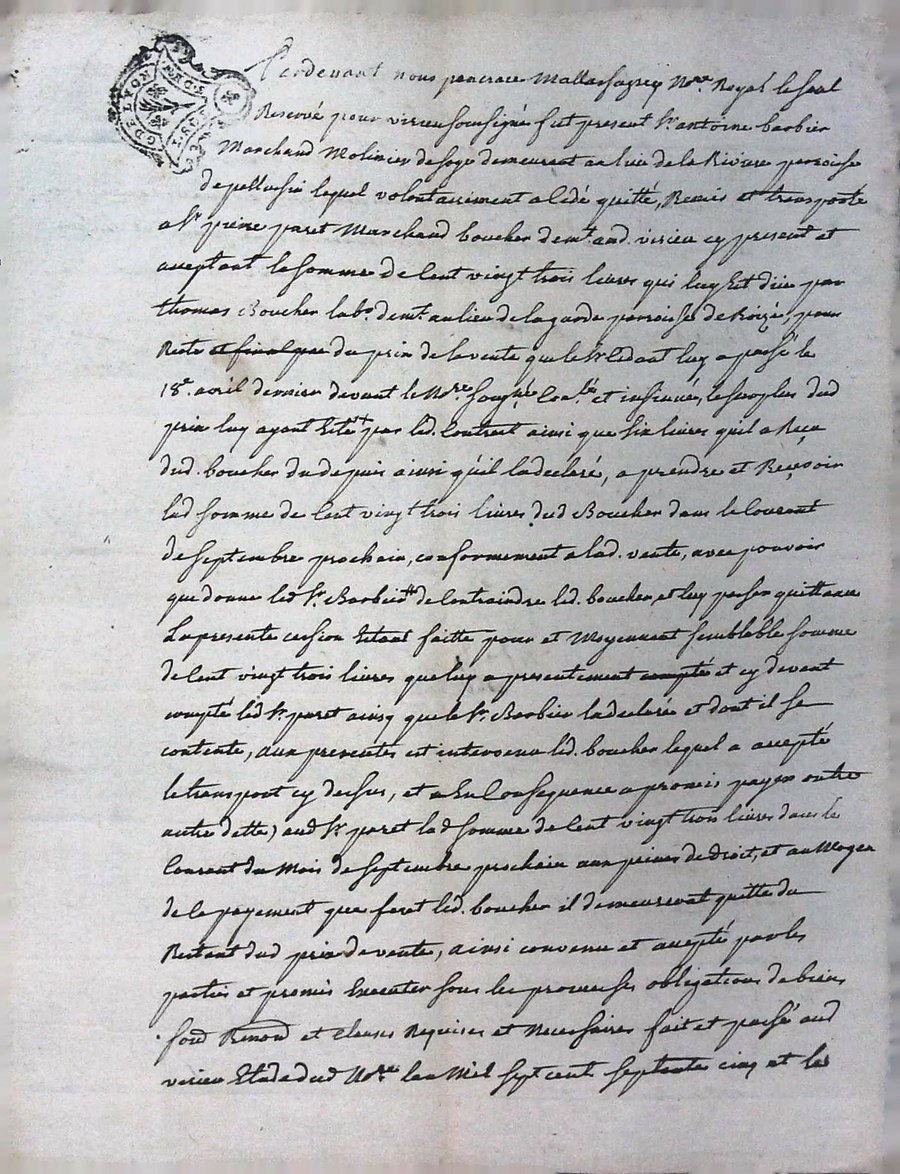 Pardevant nous pancrace Mallassagny No.re Royal le seul
Reservé pour virieu soussigné fut present Sr antoine barbier
Marchand Molinier de soye demeurant au lieu de la Riviere parroisse
de pellussin lequel volontairement a cedé quitté, Remis et transporté
a Sr pierre paret Marchand boucher demt. aud. virieu cy present et
acceptant la somme de Cent vingt trois livres qui luy Est düe par
thomas Boucher labr. demt. au lieu de la garde parroisse de Roizé, pour
Reste et final du prix de la vente que le Sr cedant luy a passé le
18e. avril dernier devant le No.re sousné Con.lé et insinué, le surplus dud
prix luy ayant Eté par led. Contract ainsi que six livres qu'il a Reçu
dud. boucher du depuis ainsi qu'il la declaré, a prendre et Reçevoir
lad somme de Cent vingt trois livres dud Boucher dans le Courant
de septembre prochain, conformement a lad. vente, avec pouvoir
que donne led Sr. Barbier de Contraindre led. boucher, et luy passer quittance
La presente cession Etant faitte pour et Moyennant semblable somme
de Cent vingt trois livres que luy a presentement compté et cy devant
compté led Sr. paret ainsy que le Sr. Barbier la declaré et dont il se
contente, aux presentes est intervenu led. boucher lequel a accepté
le transport cy dessus, et a En Consequence a promis payer outre
autre dette) aud Sr. paret lad somme de Cent vingt trois livres dans le
Courant du Mois de septembre prochain aux peines de droit, et au Moyen
de le payement que faret led. boucher il demeurerat quitte du
Restant dud prix de vente, ainsi convenu et accepté par les
parties et promis Executer sous les promesses obligations de biens
soud Renond et Clauses Requises et Necessaires fait et passé aud
virieu Etude dud No.re l'an Mil sept cent septente cinq et le
G DE LYON